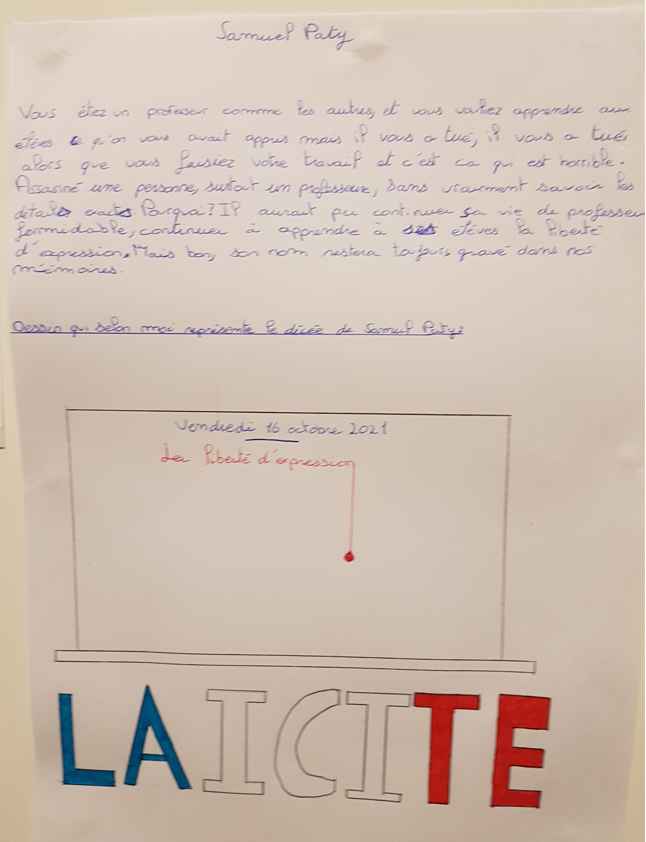 Samuel Paty
Vous étiez un professeur commme les autres, et vous vouliez apprendre aux
élèves ce qu'on vous avait appris mais il vous a tué, il vous a tué
alors que vous faisiez votre travail et c'est ca qui est horrible.
Assasiné une personne, surtout un professeure, sans vraiment savoir les
détails exactes. Pourquoi? Il aurait pu continuer sa vie de professeur
formidable, continuer à apprendre à ses élèves la liberté
d'expression. Mais bon, son nom restera toujours gravé dans nos
mémoires.
Dessin qui selon moi représente le dicée de Samuel Paty:
Vendredi 16 octobre 2021
La liberté d'expression
LAICITE